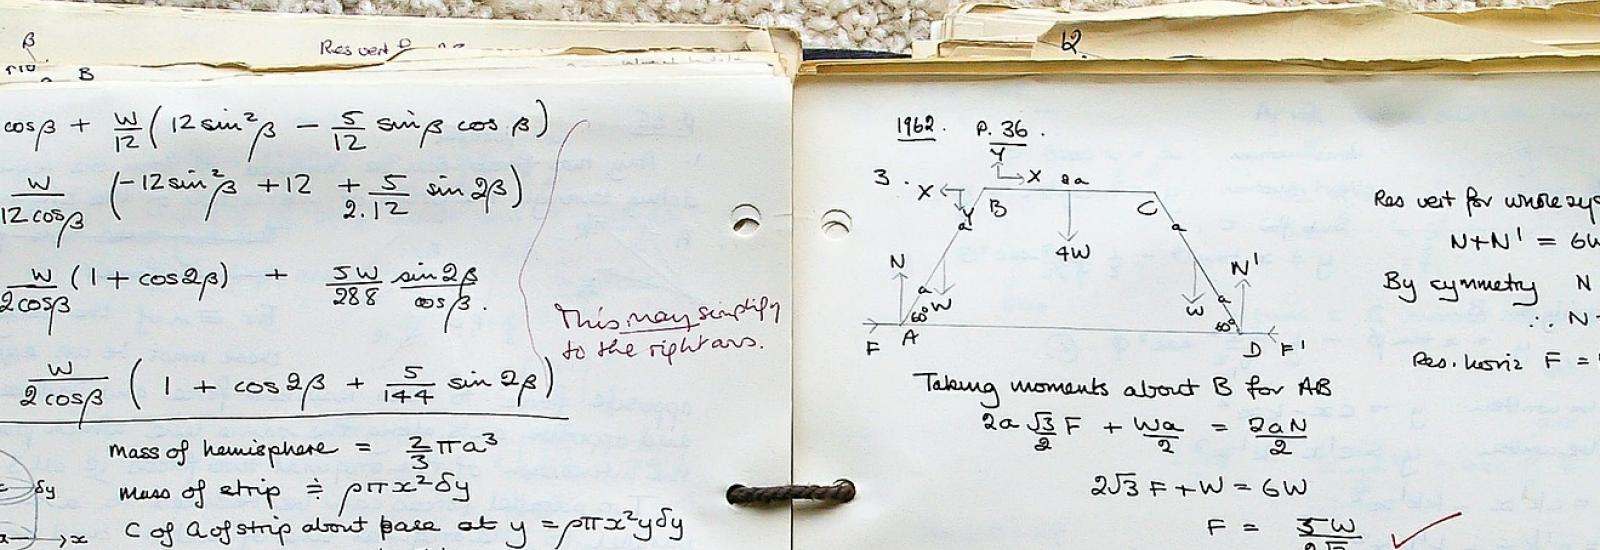 β
B
Res vert
cosβ + W/12 (12 sin²β − 5/12 sinβ cos β)
W/12 cosβ (−12 sin²β + 12 + 5/2.12 sin 2β)
W/2cosβ (1 + cos2β) + 5W/288 sin2β/cosβ.
This may simplify
to the right ans.
W/2cosβ (1 + cos2β + 5/144 sin 2β)
mass of hemisphere = 2/3 πa³
δy
mass of strip ≑ ρπx²δy
→x
C of G of strip about base at y = ρπx²yδy
62
1962. P. 36.
Y
3. X X 2a
Y B C
a a
4W
N N'
a W W a
60° 60°
F A D F'
Taking moments about B for AB
2a √3/2 F + Wa/2 = 2aN/2
2√3 F + W = 6W
F = 5W
Res vert for whole sys
N+N' = 6W
By symmetry N
∴ N
Res. horiz F =